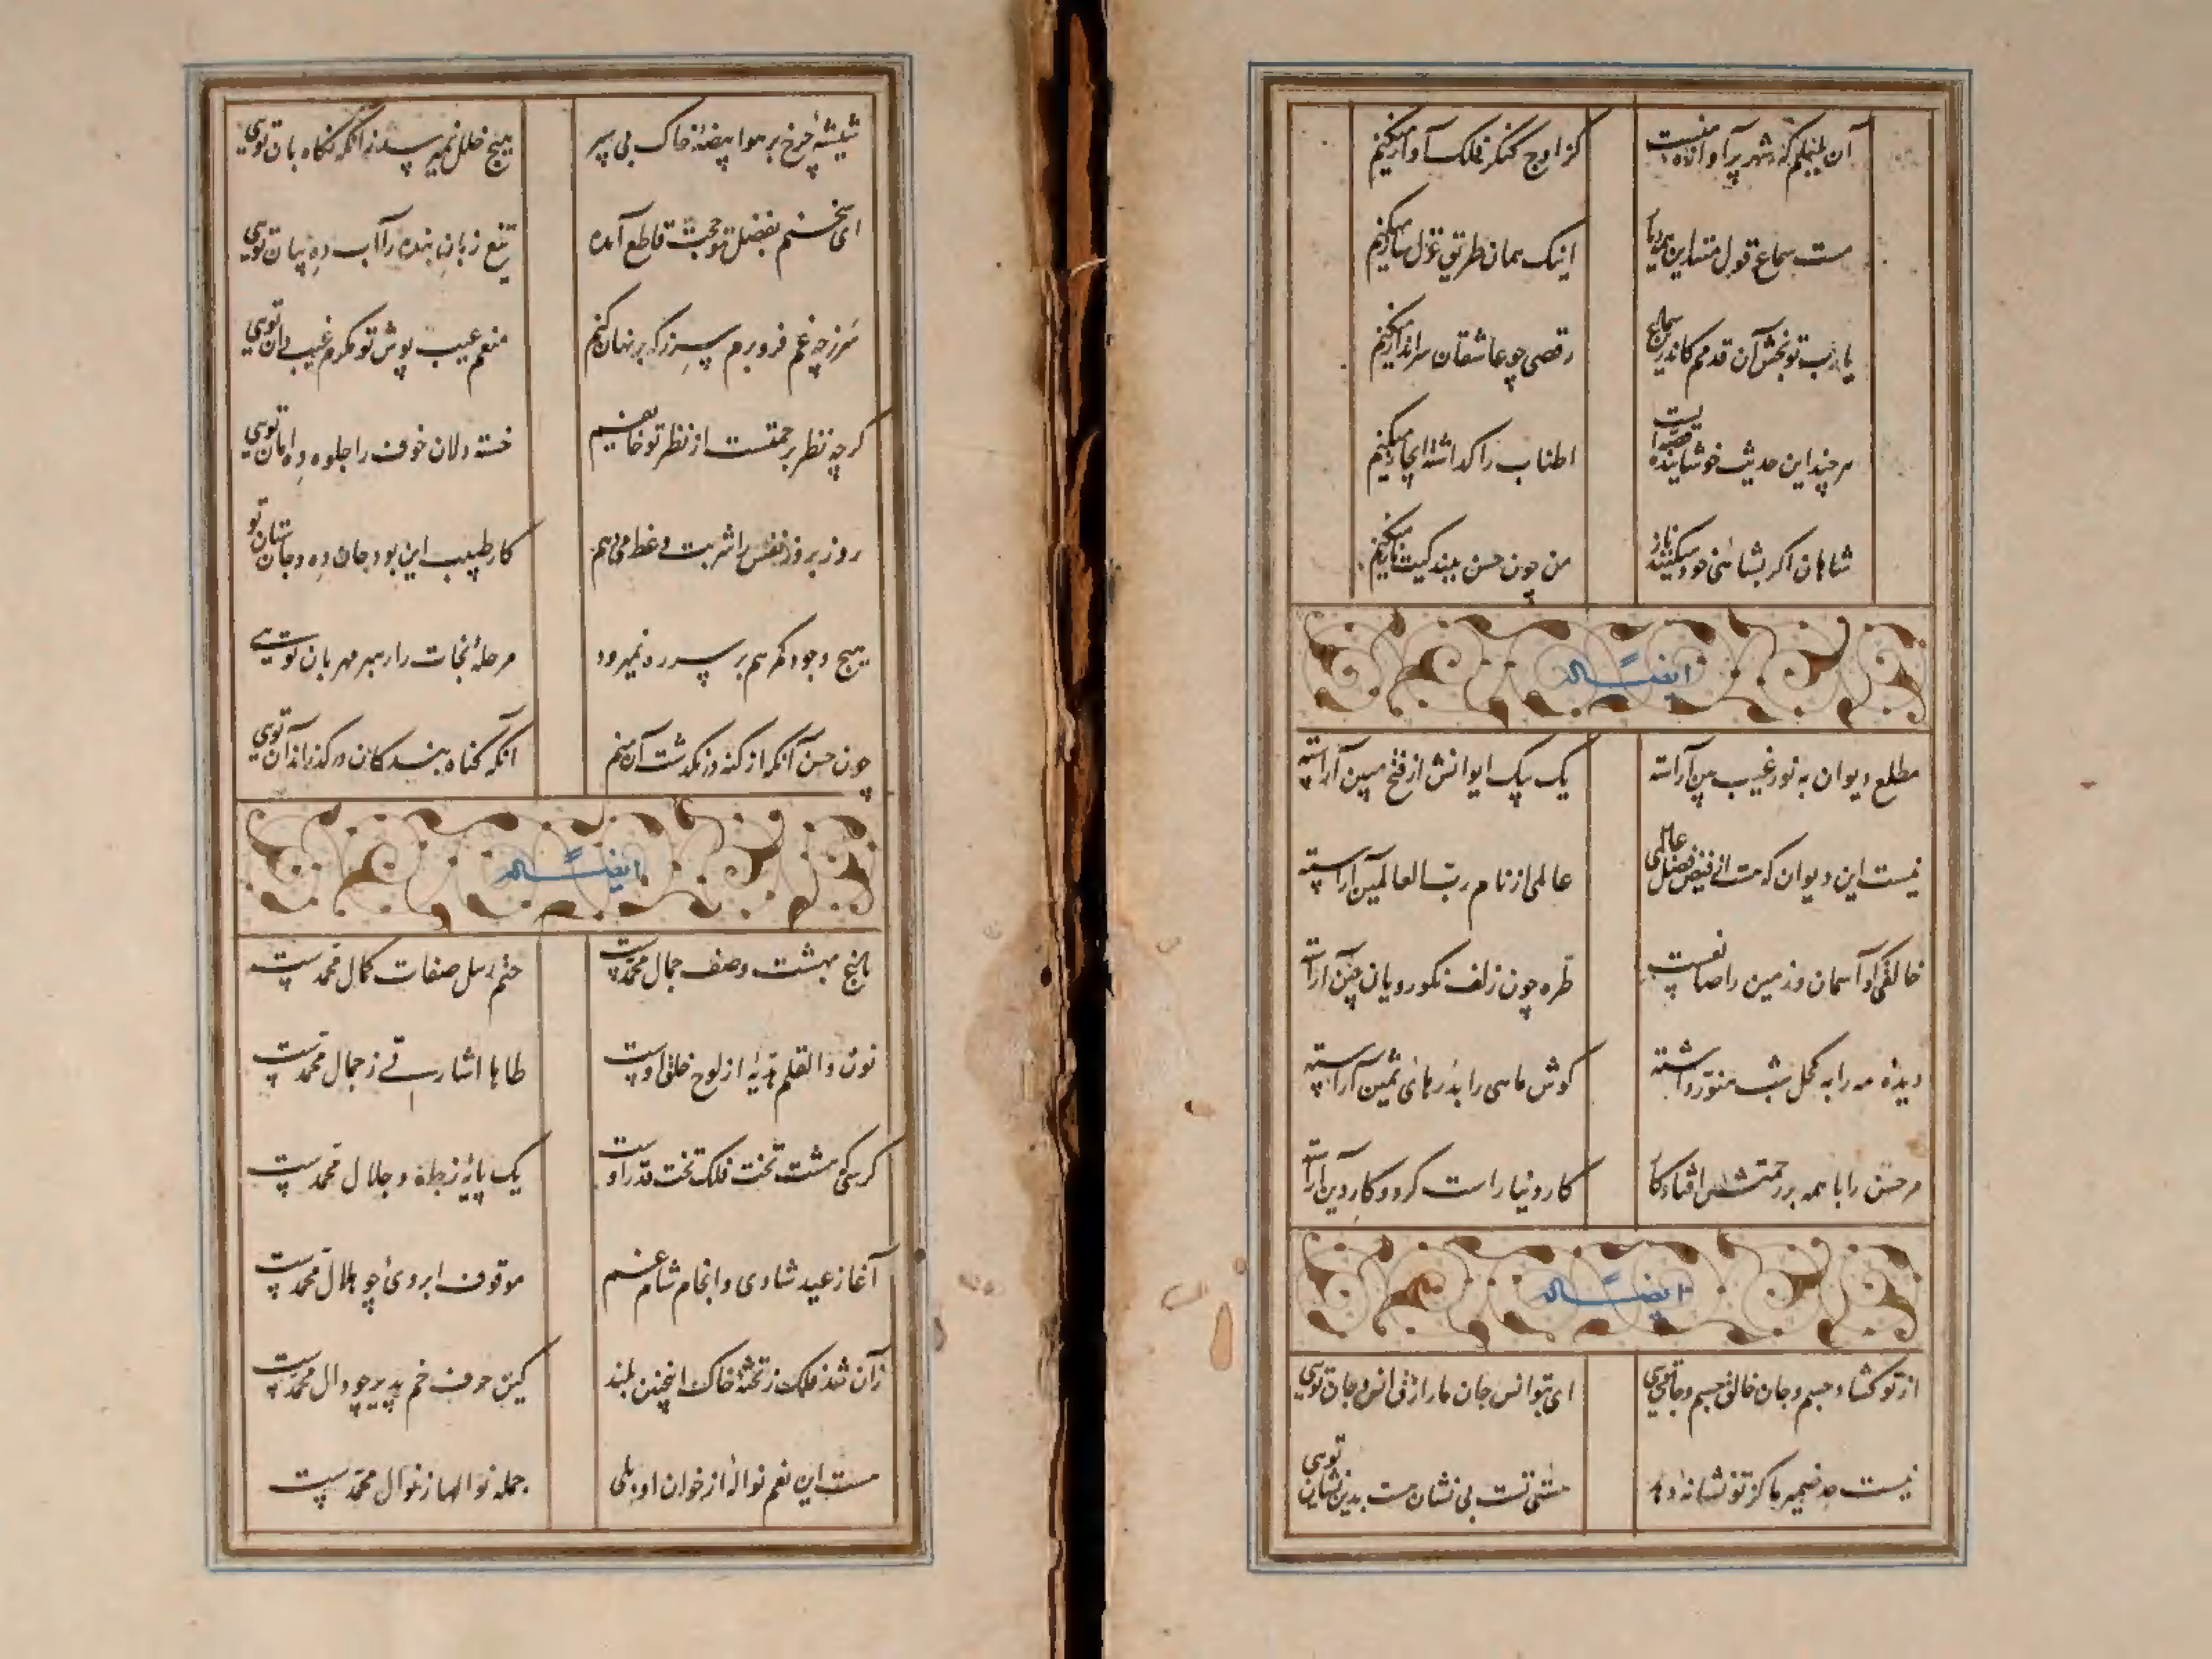 آن بلبلم که شهر پر آوازه منست
کز اوج کنگر فلک آواز میکنم
مست سماع قول متین این
اینک همان طریق غزل ساز میکنم
یارب تو بخش آن قدمم کاندرین سماع
رقصی چو عاشقان سرانداز میکنم
هر چند این حدیث خوشاینده قصه ایست
اطناب را گذاشته ایجاز میکنم
شاهان اگر بشاهی خود میکنند ناز
من چون حسن به بندگیت ناز میکنم
ایضاً له
مطلع دیوان به نور غیب بین آراسته
یک بیک ایوانش از فتح مبین آراسته
نیست این دیوان که هست از فیض فضل عالمی
عالمی از نام رب العالمین آراسته
خالقی کو آسمان و زمین را صانعست
طره چون زلف نکورویان چین آراسته
دیده مه را به کحل شب منور داشته
گوش ماهی را بدرهای ثمین آراسته
مر حسن را با همه بر رحمتش افتاد کار
کار دنیا راست کرد و کار دین آراسته
ایضاً له
از تو گشاد جسم و جان خالق جسم و جان تویی
ای بتو انس جان ما رازق انس و جان تویی
نیست حد ضمیر ما کز تو نشانه دهد
هستی تست بی نشان هست بدین نشان تویی
شیشه چرخ بر هوا بیضه خاک بی سپر
هیچ خلل نمیرسد زانکه نگاه بان تویی
ای سخنم بفضل تو حجت قاطع آمده
تیغ زبان بنده را آب ده بیان تویی
سر ز چه غم فرو برم سر ز که بر نهان کنم
منعم عیب پوش تو مکرم غیب دان تویی
گرچه نظر برحمتست از نظر تو خایفیم
خسته دلان خوف را جلوه ده امان تویی
روز بروز نفس را شربت وعظ می دهم
کار طبیب این بود جان ده و جان ستان تو
هیچ وجود که هم بر سر ره نمیرود
مرحله نجات را رهبر مهربان تویی
چون حسن آنکه از گنه در نگذشت آن منم
آنکه گناه بندگان درگذراند آن تویی
ایضاً له
باغ بهشت وصف جمال محمدست
ختم رسل صفات کمال محمدست
نون والقلم بدیه از لوح خلق اوست
طاها اشارتی ز جمال محمدست
کرسی هشت تخت فلک تخت قدر اوست
یک پایه ز جلال محمدست
آغاز عید شادی و انجام شام غم
موقوف ابروی چو هلال محمدست
زان شد فلک ز تخته خاک اینچنین بلند
کین حرف خم پذیر چو دال محمدست
هست این نعم نواله از خوان او بلی
جمله نوالها ز نوال محمدست